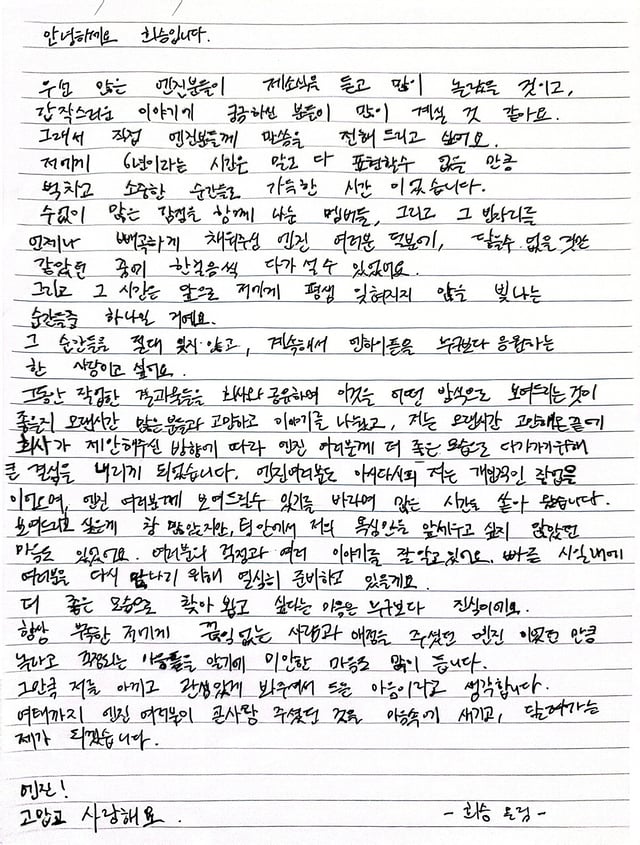 안녕하세요 희승입니다.
우선 많은 엔진분들이 제소식을 듣고 많이 놀랐을 것이고,
갑작스러운 이야기에 궁금하신 분들이 많이 계실 것 같아요.
그래서 직접 엔진분들께 말씀을 전해 드리고 싶어요.
저에게 6년이라는 시간은 말로 다 표현할수 없을 만큼
벅차고 소중한 순간들로 가득한 시간 이었습니다.
수없이 많은 감정을 함께 나눈 멤버들, 그리고 그 빈자리를
언제나 빼곡하게 채워주신 엔진 여러분 덕분에, 닿을수 없을 것만
같았던 꿈에 한걸음씩 다가 설 수 있었어요.
그리고 그 시간은 앞으로 저에게 평생 잊혀지지 않을 빛나는
순간들중 하나일 거에요.
그 순간들을 절대 잊지 않고, 계속해서 엔하이픈을 누구보다 응원하는
한 사람이고 싶어요.
그동안 작업한 결과물들을 회사와 공유하며 이것을 어떤 방식으로 보여드리는것이
좋을지 오랜시간 많은분들과 고민하고 이야기를 나눴고, 저는 오랜시간 고민해온끝에
회사가 제안해주신 방향에 따라 엔진 여러분께 더 좋은 모습으로 다가가기위해
큰 결심을 내리게 되었습니다. 엔진여러분도 아시다시피 저는 개인적인 작업을
이어오며, 엔진 여러분께 보여드릴수 있기를 바라며 많은 시간을 쏟아 왔습니다.
보여드리고 싶은게 참 많았지만, 팀 안에서 저의 욕심만을 앞세우고 싶지 않았던
마음도 있었어요. 여러분의 걱정과 여러 이야기를 잘 알고 있어요. 빠른 시일내에
여러분을 다시 만나기 위해 열심히 준비하고 있을게요.
더 좋은 모습으로 찾아 뵙고 싶다는 마음은 누구보다 진심이에요.
항상 부족한 저에게 끊임 없는 사랑과 애정을 주셨던 엔진 이었던 만큼
놀라고 걱정되는 마음들을 알기에 미안한 마음도 많이 듭니다.
그만큼 저를 아끼고 관심있게 봐주셔서 드는 마음이라고 생각합니다.
여태까지 엔진 여러분이 큰사랑 주셨던 것을 마음속에 새기고, 달려가는
제가 되겠습니다.
엔진!
고맙고 사랑해요.
- 희승 올림 -